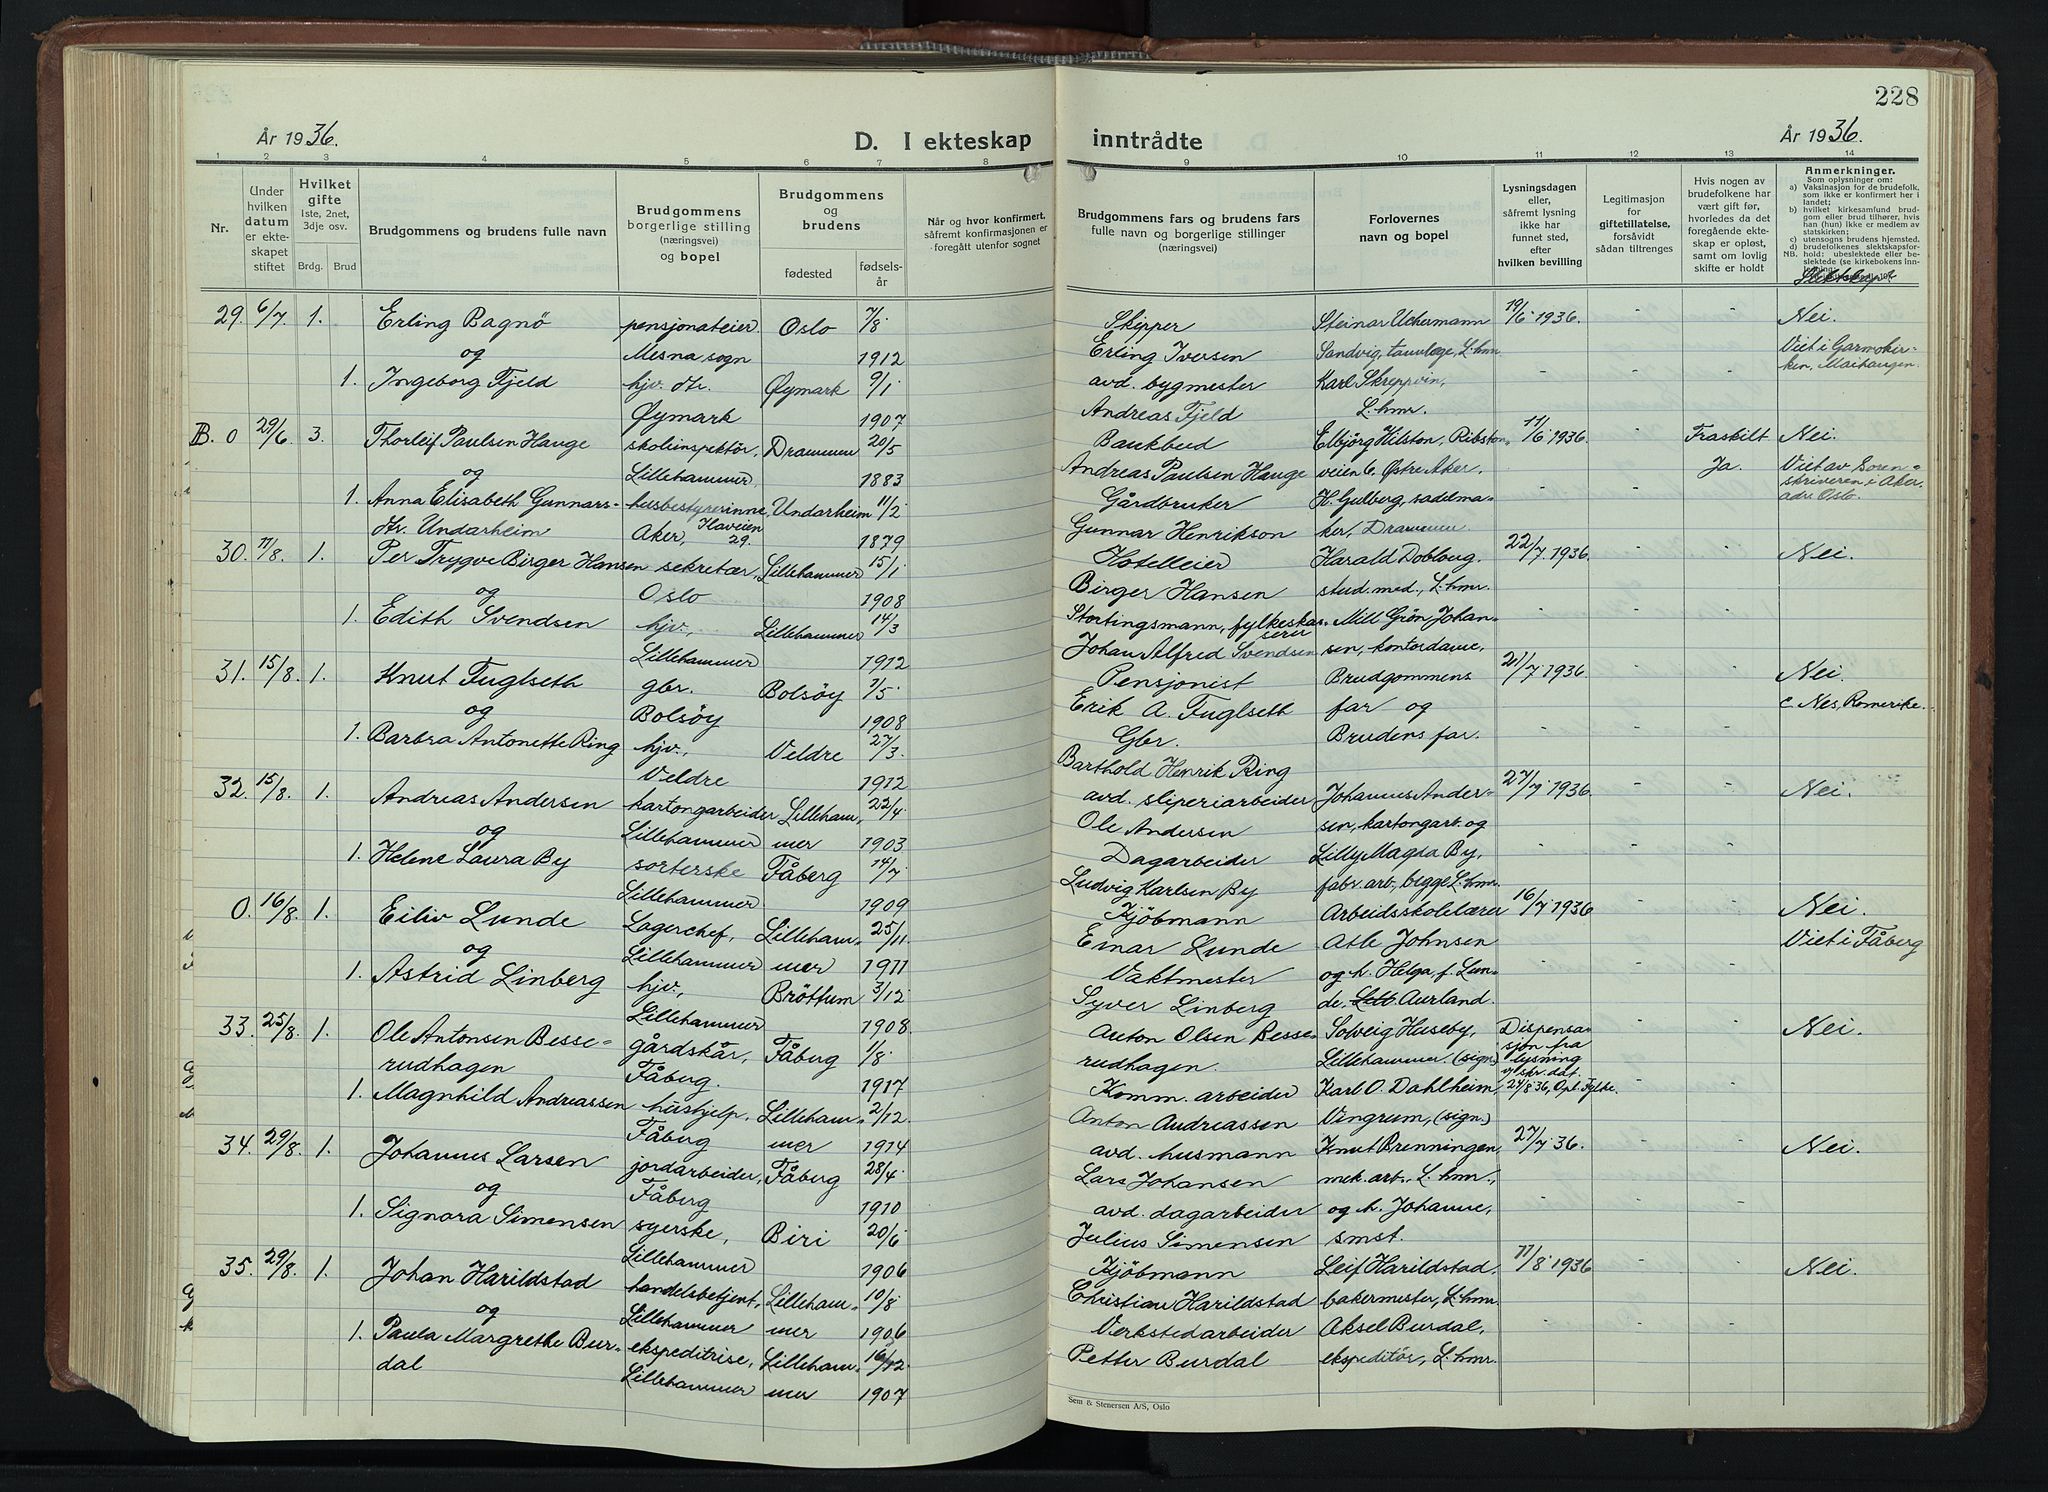 228
År 1936.
D. I ekteskap inntrådte
År 1936.
1 2 3 4 5 6 7 8 9 10 11 12 13 14
Nr.
Under hvilken datum er ekteskapet stiftet
Hvilket gifte 1ste, 2net, 3dje osv.
Brdg. Brud
Brudgommens og brudens fulle navn
Brudgommens borgerlige stilling (næringsvei) og bopel
Brudgommens og brudens
fødested
fødselsår
Når og hvor konfirmert, såfremt konfirmasjonen er foregått utenfor sognet
Brudgommens fars og brudens fars fulle navn og borgerlige stillinger (næringsvei)
Forlovernes navn og bopel
Lysningsdagen eller, såfremt lysning ikke har funnet sted, efter hvilken bevilling
Legitimasjon for giftetillatelse, forsåvidt sådan tiltrenges
Hvis nogen av brudefolkene har vært gift før, hvorledes da det foregående ekteskap er opløst, samt om lovlig skifte er holdt
Anmerkninger.
Som oplysninger om:
a) Vaksinasjon for de brudefolk, som ikke er konfirmert her i landet;
b) hvilket kirkesamfund brudgom eller brud tilhører, hvis han (hun) ikke er medlem av statskirken;
c) utensogns brudens hjemsted.
d) brudefolkenes slektskapsforhold: ubeslektede eller beslektede (se kirkebokens innledning
NB.
Slektskap?
29. 6/7. 1. Erling Bagnö pensjonateier. Oslo 7/8 Skipper Steinar Uchermann 19/6 1936. - - Nei.
og Mesna sogn 1912 Erling Iversen Sandvig, tannlæge, L.hmr. Viet i Garmokir-
1. Ingeborg Fjeld hjv. dtr. Øymark 9/1 avd. bygmester Karl Skreppvin, ken, Maihaugen.
Øymark 1907 Andreas Fjeld L.hmr.
B. 0 29/6. 3. Thorleif Paulsen Hauge skoleinspektör, Drammen 20/5 Bankbud Elbjörg Hilston, Ribston- 11/6 1936. - Fraskilt Nei.
og Lillehammer, 1883 Andreas Paulsen Hauge veien 6. Østre Aker. Ja. Viet av Soren-
1. Anna Elisabeth Gunnars- husbestyrerinne, Undarheim 11/2 Gårdbruker H. Gulberg, sadelma- skriveren i Aker.
dtr. Undarheim Aker, Haveien 29. 1879 Gunnar Henrikson ker, Drammen. adr. Oslo.
30. 11/8. 1. Per Trygve Birger Hansen sekretær, Lillehammer 15/1 Hotelleier Harald Dobloug. 22/7 1936. - - Nei.
og Oslo 1908 Birger Hansen stud. med., L.hmr.
1. Edith Svendsen hjv., Lillehammer 14/3 Stortingsmann, fylkeskas- Mill Grön Johan-
Lillehammer 1912 serer Johan Alfred Svendsen sen, kontordame,
31. 15/8. 1. Knut Fuglseth gbr. Bolsöy 7/5 Pensjonist Brudgommens 21/7 1936. - - Nei.
og Bolsöy 1908 Erik A. Fuglseth far og c. Nes, Romerike.
1. Barbra Antonette Ring hjv., Veldre 27/3. Gbr. Brudens far.
Veldre 1912 Barthold Henrik Ring
32. 15/8. 1. Andreas Andersen kartongarbeider Lilleham- 22/4 avd. sliperiarbeider Johannes Ander- 27/7 1936. - - Nei.
og Lillehammer mer 1903 Ole Andersen sen, kartongarb. og
1. Helene Laura By sorterske Fåberg 14/7 Dagarbeider Lilly Magda By,
Lillehammer 1909 Ludvig Karlsen By fabr. arb., begge L.hmr.
0. 16/8. 1. Eiliv Lunde Lagerchef, Lilleham- 25/11. Kjöbmann Arbeidsskolelærer 16/7 1936 - - Nei.
og Lillehammer mer 1911 Einar Lunde Atle Johnsen Viet i Fåberg
1. Astrid Linberg hjv., Bröttum 3/12 Vaktmester og h. Helga, f. Lun-
Lillehammer 1908. Syver Linberg de. Aurland.
33. 25/8. 1. Ole Antonsen Besse- gårdskår, Fåberg 1/8 Anton Olsen Besse- Solveig Huseby, Dispensa- Nei.
rudhagen Fåberg. 1917 rudhagen. Lillehammer. (sign.) sjon fra lysning
1. Magnhild Andreassen hushjelp, Lilleham- 2/12. Komm. arbeider Karl O. Dahlheim, skr. dat. 24/8 36, Opl. Fylke.
Fåberg mer 1914 Anton Andreassen Vingrum, (sign.)
34. 29/8. 1. Johannes Larsen jordarbeider, Fåberg 28/4 avd. husmann Knut Brenningen, 27/7 36. - - Nei.
og Fåberg 1910 Lars Johansen mek. arb., L.hmr.,
1. Signora Simensen syerske, Biri 20/6 avd. dagarbeider og h. Johanne,
Lillehammer 1906 Julius Simensen smst.
35. 29/8. 1. Johan Harildstad handelsbetjent, Lilleham- 10/8 Kjöbmann Leif Harildstad. 11/8 1936 - - Nei.
og Lillehammer mer 1906 Christian Harildstad bakermester, L.hmr.
1. Paula Margrethe Bur- ekspeditrise, Lilleham- 16/12. Verkstedarbeider Aksel Burdal,
dal Lillehammer mer 1907 Petter Burdal ekspeditör, L.hmr.
Sem & Stenersen A/S, Oslo